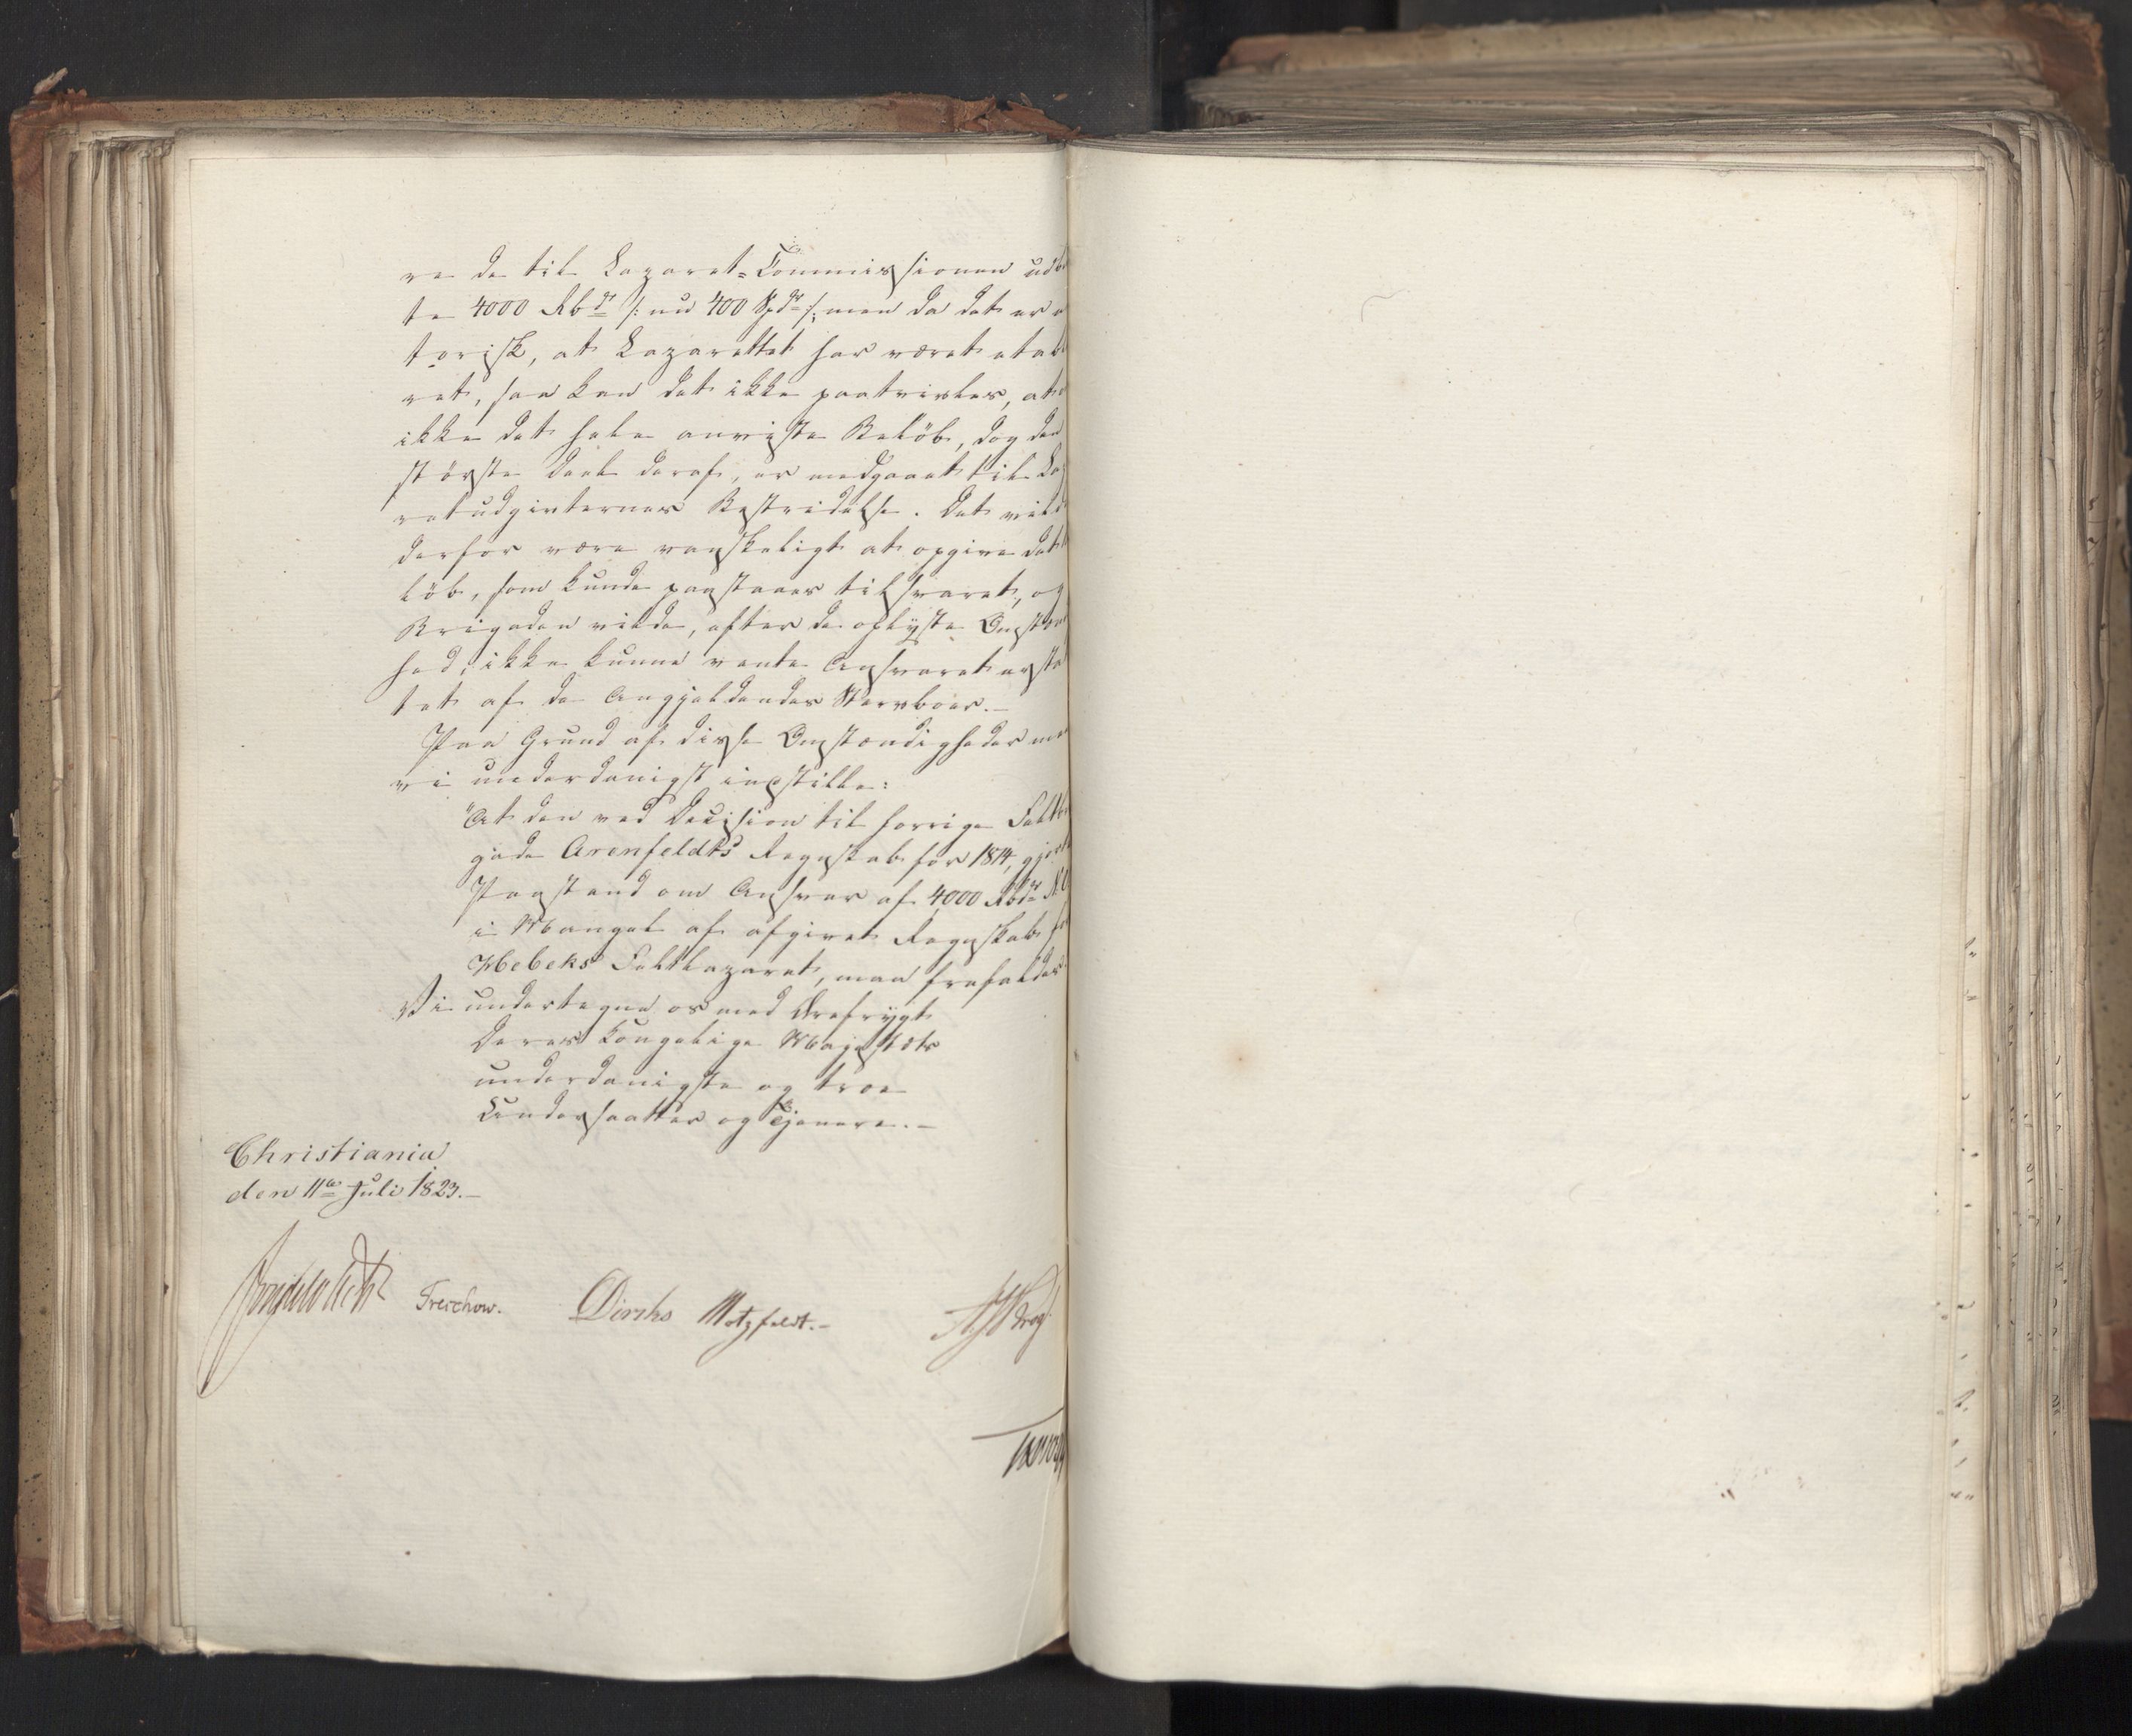 re de til Lazaret-Commissionen udbe
te 4000 Rbdr /: nu 400 Spdr :/ men da det er
torisk, at Lazarettet har været etab
ret, saa kan det ikke paatvivles, at
ikke det hele anviste Beløb, dog den
største Deel deraf, er medgaaet til La
retudgivternes Bestridelse. Det vil
derfor være vanskeligt at opgive det
løb, som kunde paastaaes tilsvaret, og
Brigaden vilde, efter de oplyste Omstæn
hed, ikke kunne vente Ansvaret ersta
tet af de Angjeldendes Stervboer.
Paa Grund af disse Omstændigheder maa
vi underdanigst indstille:
"At den ved Decision til forrige Feltbri
gade Arenfeldts Regnskab for 1814, gjorte
Paastand om Ansvar af 4000 Rbdr N.V.
i Mangel af afgivet Regnskab for
Hebeks Feltlazaret, maa frafaldes
Vi undertegne os med Ærefrygt
Deres Kongelige Majestæts
underdanigste og troe
Undersaatter og Tjenere.
Christiania
den 11te Juli 1823.
Treschow. Diriks Motzfeldt.